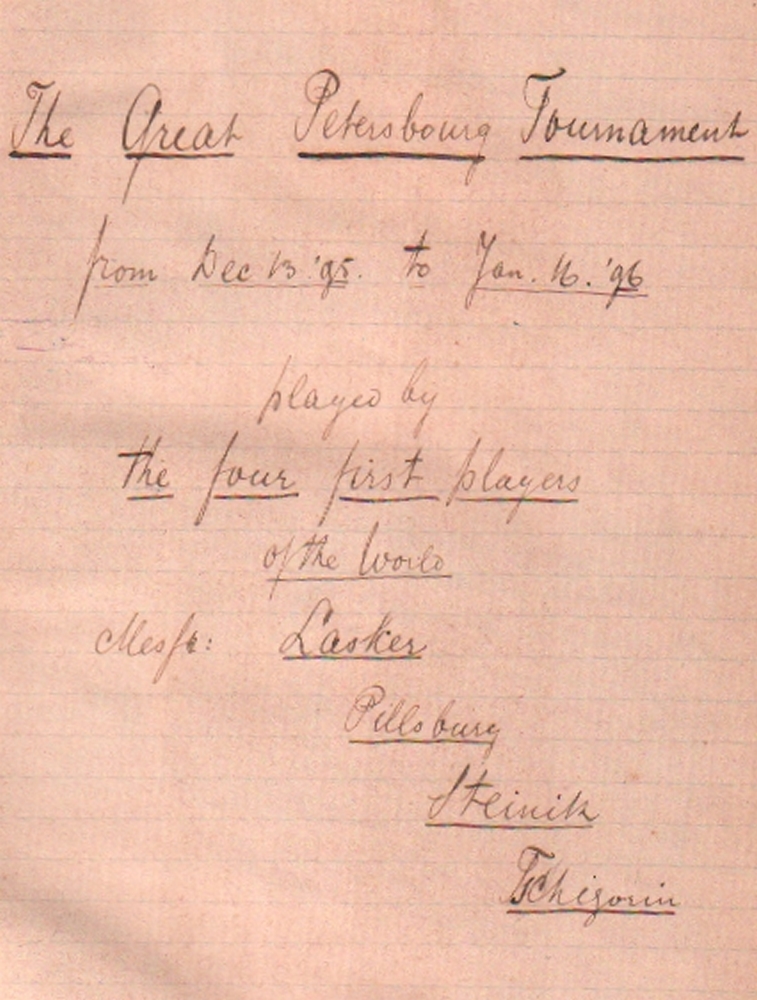 The Great Petersbourg Tournament
from Dec 13 '95. to Jan. 16. '96
played by
the four first players
of the World
Messrs: Lasker
Pillsburg
Steinik
Tschigorin